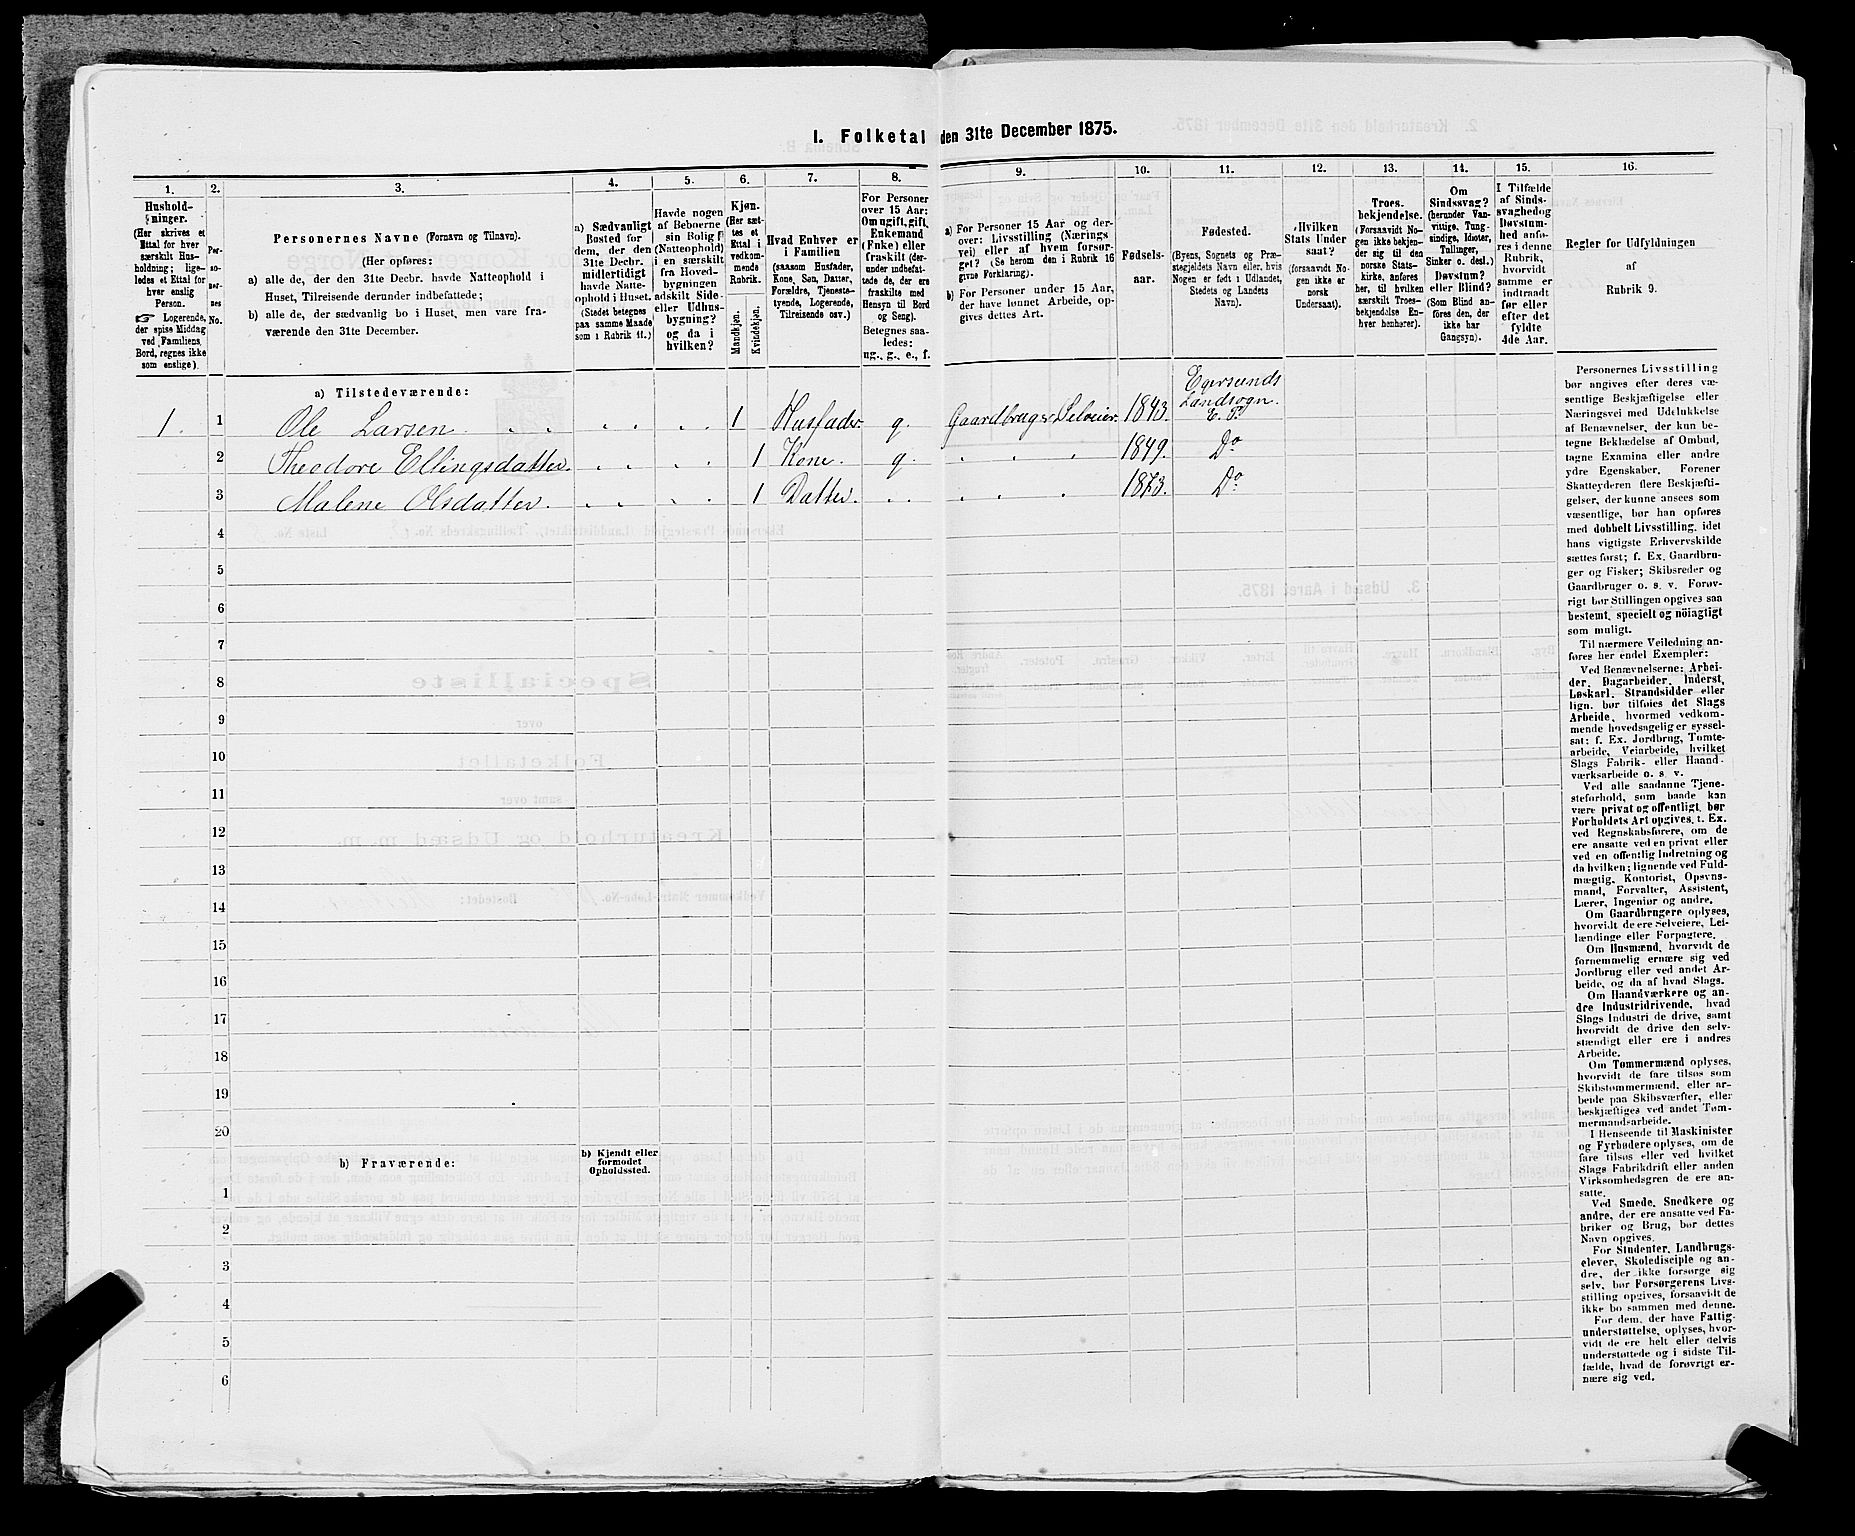 I. Folketal den 31te December 1875.
1. 2. 3. 4. 5. 6. 7. 8. 9. 10. 11. 12. 13. 14. 15. 16.
Hushold-
ninger.
(Her skrives et
Ettal for hver
særskilt Hus-
holdning; lige-
ledes et Ettal for
hver enslig
Person.
☞ Logerende,
der spise Middag
ved Familiens
Bord, regnes ikke
som enslige).
Per-
so-
ner-
nes
No.
Personernes Navne (Fornavn og Tilnavn).
(Her opføres:
a) alle de, der den 31te Decbr. havde Natteophold i
Huset, Tilreisende derunder indbefattede;
b) alle de, der sædvanlig bo i Huset, men vare fra-
værende den 31te December.
a) Sædvanligt
Bosted for
dem, der den
31te Decbr.
midlertidigt
havde Natte-
ophold i Huset.
(Stedet betegnes
paa samme Maade
som i Rubrik 11.)
Havde nogen
af Beboerne
sin Bolig
(Natteophold)
i en særskilt
fra Hoved-
bygningen
adskilt Side-
eller Udhus-
bygning?
og da i
hvilken?
Kjøn.
(Her sæt-
tes et
Ettal i
vedkom-
mende
Rubrik.
Mandkjøn.
Kvindekjøn.
Hvad Enhver er
i Familien
(saasom Husfader,
Kone, Søn, Datter,
Forældre, Tjeneste-
tyende, Logerende,
Tilreisende osv.)
For Personer
over 15 Aar:
Om ugift, gift,
Enkemand
(Enke) eller
fraskilt (der-
under indbefat-
tede de, der ere
fraskilte med
Hensyn til Bord
og Seng).
Betegnes saa-
ledes:
ug., g., e., f.
a) For Personer 15 Aar og der-
over: Livsstilling (Nærings
vei) eller af hvem forsør-
get? (Se herom den i Rubrik 16
givne Forklaring).
b) For Personer under 15 Aar,
der have lønnet Arbeide, op-
gives dettes Art.
Fødsels-
aar.
Fødested.
(Byens, Sognets og Præ-
stegjeldets Navn eller, hvis
Nogen er født i Udlandet,
Stedets og Landets
Navn).
Hvilken
Stats Under
saat?
(forsaavidt No-
gen ikke er
norsk
Undersaat).
Troes-
bekjendelse.
(Forsaavidt No-
gen ikke bekjen-
der sig til den
norske Stats-
kirke, anføres
her, til hvilken
særskilt Troes-
bekjendelse En-
hver henhører).
Om
Sindssvag?
(herunder Van-
vittige, Tung-
sindige, Idioter,
Tullinger,
Sinker o. desl.)
Døvstum?
eller Blind?
(Som Blind an-
føres den, der
ikke har
Gangsyn).
I Tilfælde
af Sinds-
svaghed og
Døvstum-
hed anfø-
res i denne
Rubrik,
hvorvidt
samme er
indtraadt
før eller
efter det
fyldte
4de Aar.
Regler for Udfyldningen
af
Rubrik 9.
a) Tilstedeværende:
Egersunds
Landsogn.
1. 1 Ole Larsen 1 Husfader g. Gaardbruger Selveier. 1843. E. P.
2 Theodore Ellingsdatter. 1 Kone. g. 1849. Do
3 Malene Olsdatter. 1 Datter. 1873. Do
4
5
6
7
8
9
10
11
12
13
14
15
16
17
18
19
20
b) Fraværende:
b) Kjendt eller
formodet
Opholdssted.
1
2
3
4
5
6
Personernes Livsstilling
bør angives efter deres væ-
sentlige Beskjæftigelse eller
Næringsvei med Udelukkelse
af Benævnelser, der kun be-
tegne Beklædelse af Ombud,
tagne Examina eller andre
ydre Egenskaber. Forener
Skatteyderen flere Beskjæfti-
gelser, der kunne ansees som
væsentlige, bør han opføres
med dobbelt Livsstilling, idet
hans vigtigste Erhvervskilde
sættes først; f. Ex. Gaardbru-
ger og Fisker; Skibsreder og
Gaardbruger o. s. v. Forøv-
rigt bør Stillingen opgives saa
bestemt, specielt og nöiagtigt
som muligt.
Til nærmere Veiledning an-
føres her endel Exempler:
Ved Benævnelserne: Arbei-
der, Dagarbeider, Inderst,
Løskarl, Strandsidder eller
lign. bør tilføies det Slags
Arbeide, hvormed vedkom-
mende hovedsagelig er syssel-
sat; f. Ex. Jordbrug, Tømte-
arbeide, Veiarbeide, hvilket
Slags Fabrik- eller Haand-
værksarbeide o. s. v.
Ved alle saadanne Tjene-
steforhold, som baade kan
være privat og offentligt, bør
Forholdets Art opgives, t. Ex.
ved Regnskabsførere, om de
ere ansatte ved en privat eller
ved en offentlig Indretning og
da hvilken; lignende ved Fuld-
mægtig, Kontorist, Opsyns-
mand, Forvalter, Assistent,
Lærer, Ingeniør og andre.
Om Gaardbrugere oplyses,
hvorvidt de ere Selveiere, Lei-
lændinge eller Forpagtere.
Om Husmænd, hvorvidt de
fornemmelig ernære sig ved
Jordbrug eller ved andet Ar-
beide, og da af hvad Slags.
Om Haandværkere og an-
dre Industridrivende, hvad
Slags Industri de drive, samt
hvorvidt de drive den selv-
stændigt eller ere i andres
Arbeide.
Om Tømmermænd oplyses,
hvorvidt de fare tilsøs som
Skibstømmermænd, eller ar-
beide paa Skibsværfter, eller
beskjæftiges ved andet Tøm-
mermandsarbeide.
I Henseende til Maskinister
og Fyrbødere oplyses, om de
fare tilsøs eller ved hvilket
Slags Fabrikdrift eller anden
Virksomhedsgren de ere an-
satte.
Ved Smede, Snedkere og
andre, der ere ansatte ved Fa-
briker og Brug, bør dettes
Navn opgives.
For Studenter, Landbrugs-
elever, Skoledisciple og an-
dre, der ikke forsørge sig
selv, bør Forsørgerens Livs-
stilling opgives, forsaavidt de
ikke bo sammen med denne.
For dem, der have Fattig-
understøttelse, oplyses, hvor-
vidt de ere helt eller delvis
understøttede og i sidste Til-
fælde, hvad de forøvrigt er-
nære sig ved.